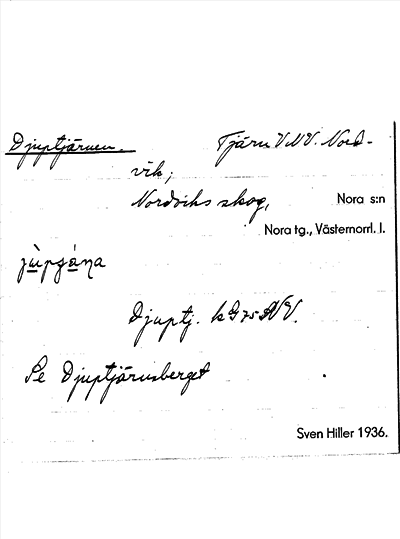 Djuptjärnen. Tjärn VNV. Nord-
vik;
Nordviks skog, Nora s:n
Nora tg., Västernorrl. l.
Djuptj. kG75NV.
Se Djuptjärnsberget
Sven Hiller 1936.